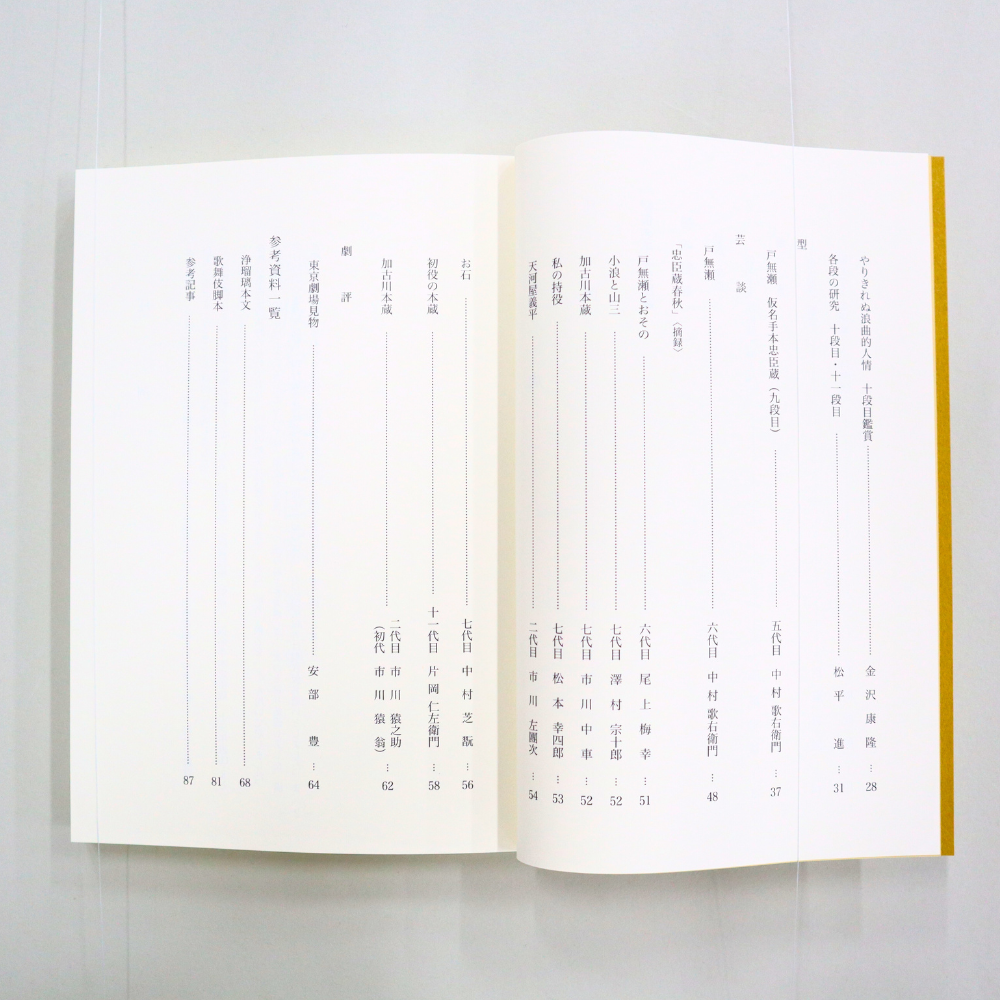 やりきれぬ浪曲的人情　十段目鑑賞……金沢康隆…28
各段の研究　十段目・十一段目……松平進…31
型
戸無瀬　仮名手本忠臣蔵（九段目）……五代目　中村歌右衛門…37
芸談
戸無瀬……六代目　中村歌右衛門…48
「忠臣蔵春秋」〈摘録〉
戸無瀬とおその……六代目　尾上梅幸…51
小浪と山三……七代目　澤村宗十郎…52
加古川本蔵……七代目　市川中車…52
私の持役……七代目　松本幸四郎…53
天河屋義平……二代目　市川左團次…54
お石……七代目　中村芝翫…56
初役の本蔵……十一代目　片岡仁左衛門…58
加古川本蔵……二代目　市川猿之助…62
（初代　市川猿翁）
劇評
東京劇場見物……安部豊…64
参考資料一覧
浄瑠璃本文……68
歌舞伎脚本……81
参考記事……87